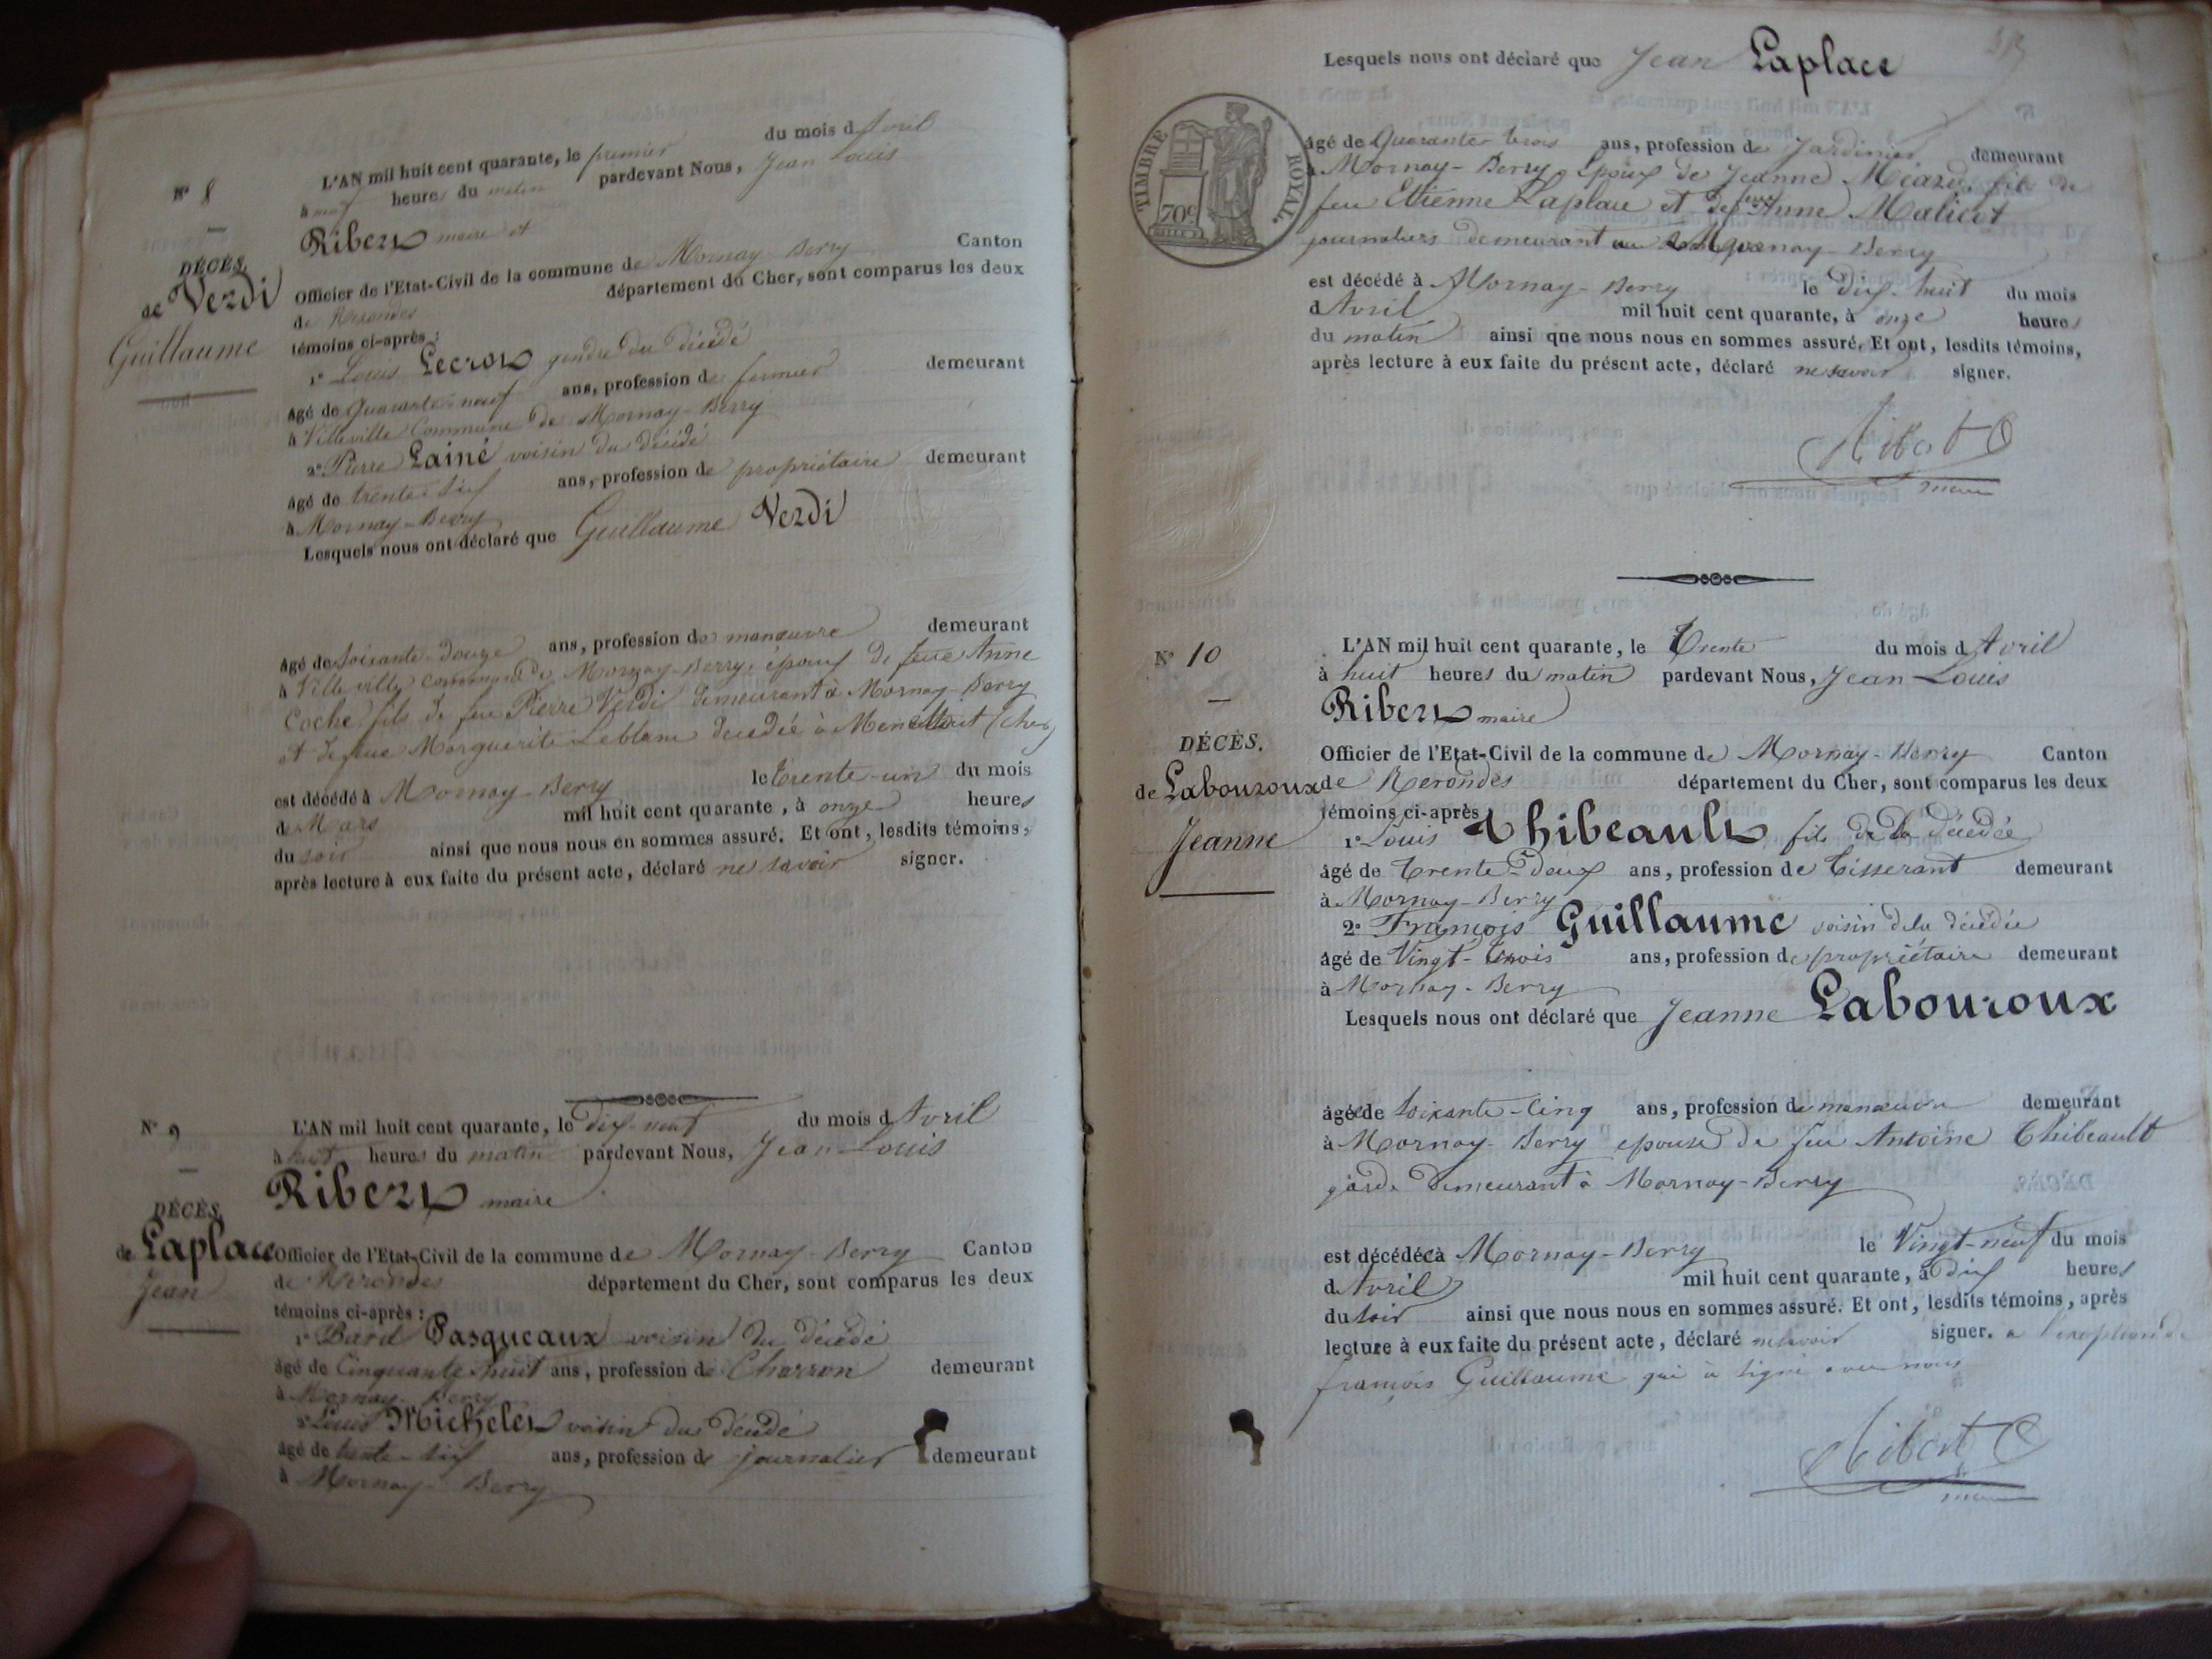 N° 8
DÉCÈS.
de Verdi
Guillaume
L'AN mil huit cent quarante, le premier du mois d'Avril
à neuf heures du matin pardevant Nous, Jean Louis
Ribert maire et
Officier de l'Etat-Civil de la commune de Mornay-Berry Canton
de Nerondes département du Cher, sont comparus les deux
témoins ci-après :
1° Louis Lecros gendre du décédé
âgé de quarante-neuf ans, profession de fermier demeurant
à Villeville Commune de Mornay-Berry
2° Pierre Lainé voisin du décédé
âgé de trente-six ans, profession de propriétaire demeurant
à Mornay-Berry
Lesquels nous ont déclaré que Guillaume Verdi
âgé de soixante-douze ans, profession de manœuvre demeurant
à Villeville commune de Mornay-Berry, époux de feue Anne
Coche fils de feu Pierre Verdi demeurant à Mornay-Berry
et de feue Marguerite Leblanc décédée à (Cher)
est décédé à Mornay-Berry le trente-un du mois
de Mars mil huit cent quarante, à onze heures
du soir ainsi que nous nous en sommes assuré. Et ont, lesdits témoins,
après lecture à eux faite du présent acte, déclaré ne savoir signer.
N° 9
DÉCÈS.
de Laplace
Jean
L'AN mil huit cent quarante, le dix-neuf du mois d'Avril
à huit heures du matin pardevant Nous, Jean-Louis
Ribert maire
Officier de l'Etat-Civil de la commune de Mornay-Berry Canton
de Nerondes département du Cher, sont comparus les deux
témoins ci-après :
1° Pasqueaux voisin du décédé
âgé de Cinquante-huit ans, profession de Charron demeurant
à Mornay-Berry
2° Louis Michelet voisin du décédé
âgé de trente-six ans, profession de journalier demeurant
à Mornay-Berry
Lesquels nous ont déclaré que Jean Laplace
TIMBRE ROYAL.
70c
âgé de Quarante-trois ans, profession de Jardinier demeurant
à Mornay-Berry, époux de Jeanne Méard, fils de
feu Etienne Laplace et de feue Anne Malicot
journaliers demeurant Mornay-Berry
est décédé à Mornay-Berry le dix-huit du mois
d'Avril mil huit cent quarante, à onze heures
du matin ainsi que nous nous en sommes assuré. Et ont, lesdits témoins,
après lecture à eux faite du présent acte, déclaré ne savoir signer.
Ribert
maire
N° 10
DÉCÈS.
de Labouroux
Jeanne
L'AN mil huit cent quarante, le Trente du mois d'Avril
à huit heures du matin pardevant Nous, Jean-Louis
Ribert maire
Officier de l'Etat-Civil de la commune de Mornay-Berry Canton
de Nerondes département du Cher, sont comparus les deux
témoins ci-après
1° Louis Thibeault fils de la décédée
âgé de Trente-deux ans, profession de Tisserant demeurant
à Mornay-Berry
2° François Guillaume voisin de la décédée
âgé de Vingt-trois ans, profession de propriétaire demeurant
à Mornay-Berry
Lesquels nous ont déclaré que Jeanne Labouroux
âgée de Soixante-cinq ans, profession de manœuvre demeurant
à Mornay-Berry épouse de feu Antoine Thibeault
garde demeurant à Mornay-Berry
est décédée à Mornay-Berry le Vingt-neuf du mois
d'Avril mil huit cent quarante, à dix heures
du soir ainsi que nous nous en sommes assuré. Et ont, lesdits témoins, après
lecture à eux faite du présent acte, déclaré ne savoir signer. a l'exception de
françois Guillaume qui à signé avec nous
Ribert
maire